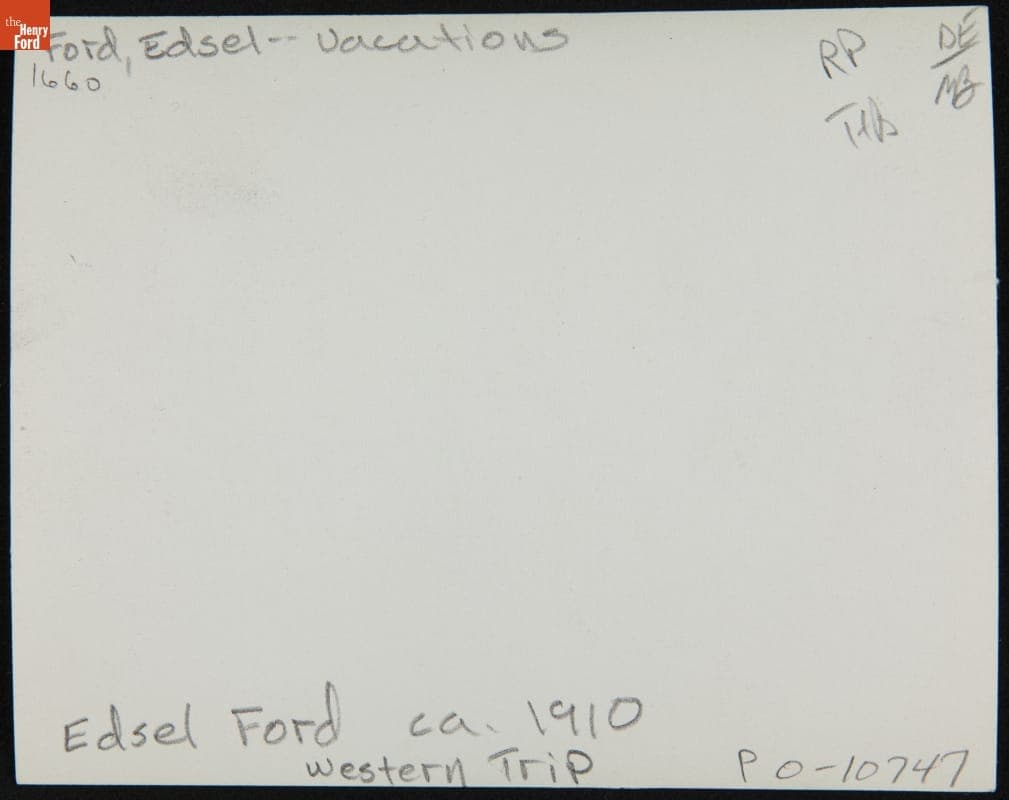 the
Henry
Ford
Ford, Edsel -- Vacations
1660
RP
DE
MB
THA
Edsel Ford ca. 1910
Western Trip
P O-10747